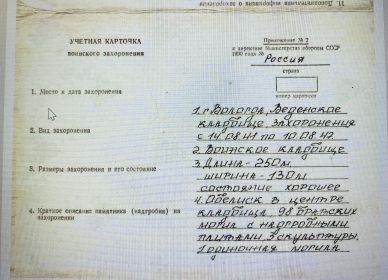 11. Дополнительная информация о захоронении
УЧЕТНАЯ КАРТОЧКА
воинского захоронения
Приложение № 2
к директиве Министерства обороны СССР
1990 года №
Россия
страна
номер карточки
1. Место и дата захоронения
1. г. Вологда, Веденское
кладбище, захоронения
с 14.08.41 по 10.08.42
2. Вид захоронения
2. Воинское кладбище
3. Размеры захоронения и его состояние
3. Длина - 250м.
ширина - 130м
состояние хорошее
4. Краткое описание памятника (надгробия) на
захоронении
4. Обелиск в центре
кладбища, 98 братских
могил с надгробными
плитами, 3 скульптуры,
1 одиночная могила